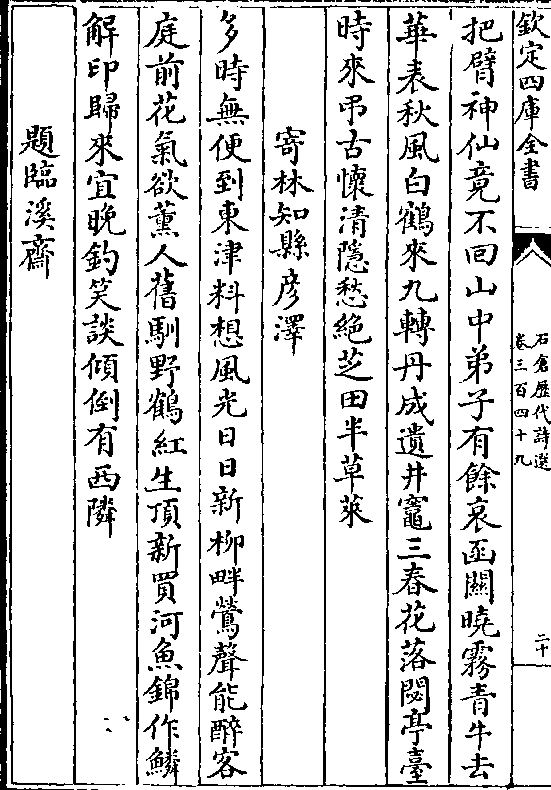 欽定四庫全書
石倉歷代詩選
卷三百四十九
二十
把臂神仙竟不回山中弟子有餘哀函關曉霧青牛去
華表秋風白鶴來九轉丹成遺井竈三春花落閟亭臺
時來弔古懷清隱愁絶芝田半草萊
寄林知縣彦澤
多時無便到東津料想風光日日新柳畔鶯聲能醉客
庭前花氣欲薰人舊馴野鶴紅生頂新買河魚錦作鱗
解印歸來宜晚釣笑談傾倒有西隣
題臨溪齋